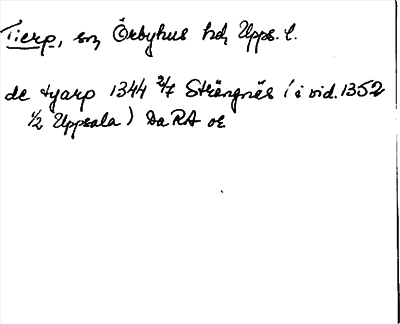 Tierp, sn, Örbyhus hd, Upps. l.
de tyarp 1344 2/7 Strängnäs (i vid. 1352
1/2 Uppsala) DaRA or